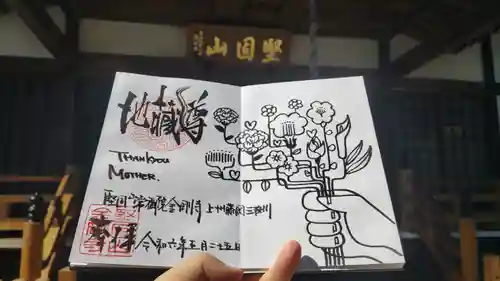 堅固山
地蔵尊
THANK YOU
MOTHER.
堅固山 金剛寺 上州藤岡三波川
奉拝 令和六年五月二十五日